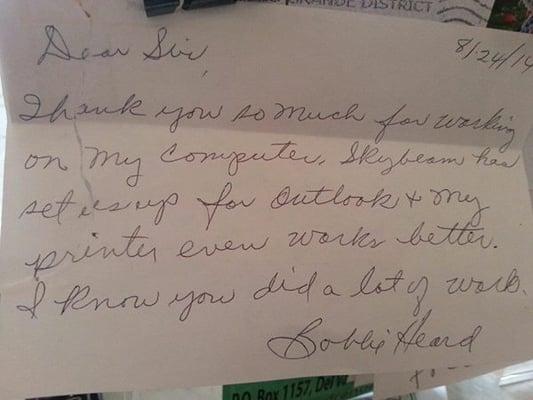 GRANDE DISTRICT
8/24/14
Dear Sir,
Thank you so much for working
on my computer. Skybeam has
set us up for Outlook + my
printer even works better.
I know you did a lot of work.
Bobbie Heard
P.O. Box 1157, Del Va